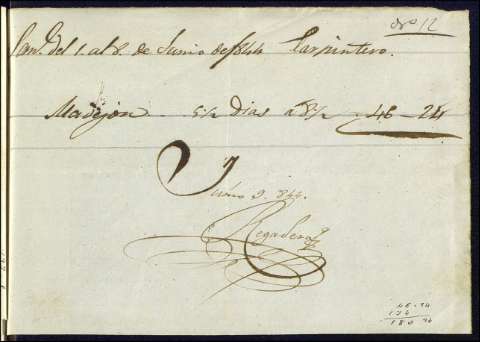 Nº 12
Sem.ª del 1. al 8. de Junio de 1844 Carpintero.
Madejon 5½ Dias a 8½ 46 - 24
Junio 9. 844.
Regadera
46 - 24
134
180 24